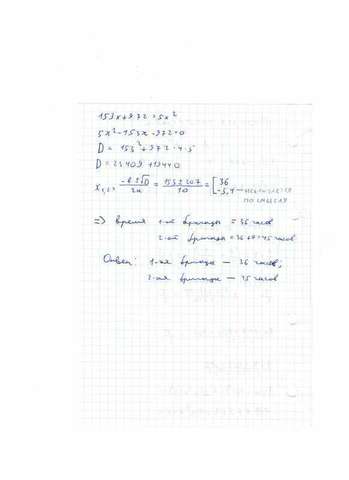 153x+972=5x²
5x²-153x-972=0
D = 153²+972·4·5
D = 23409+19440
x₁,₂ = (-b±√D)/2a = (153±207)/10 = [36 -5,4 — не является по смыслу
=> время 1-ой бригады = 36 часов
2-ой бригады = 36+9=45 часов
Ответ: 1-ая бригада — 36 часов;
2-ая бригада — 45 часов